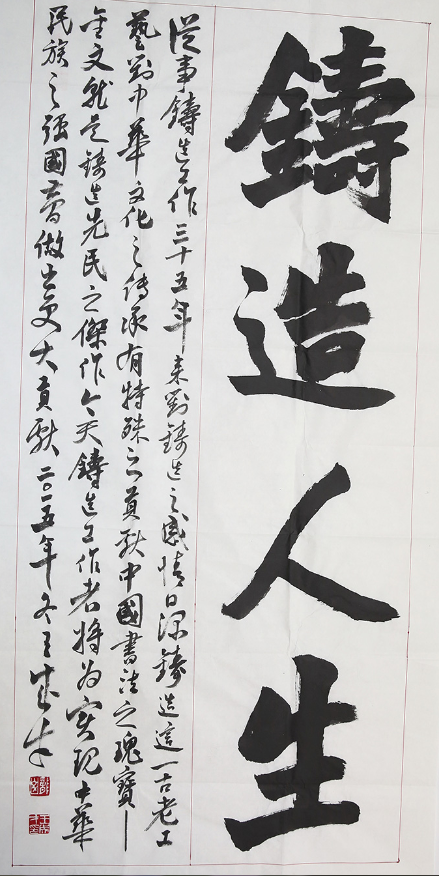 鑄造人生
從事鑄造工作三十五年來對鑄造之感情日深鑄造這一古老工
藝對中華文化之傳承有特殊之貢獻中國書法之瑰寶—
金文就是鑄造先民之傑作今天鑄造工作者將為實現中華
民族之强國夢做出更大貢獻二〇一五年冬王成